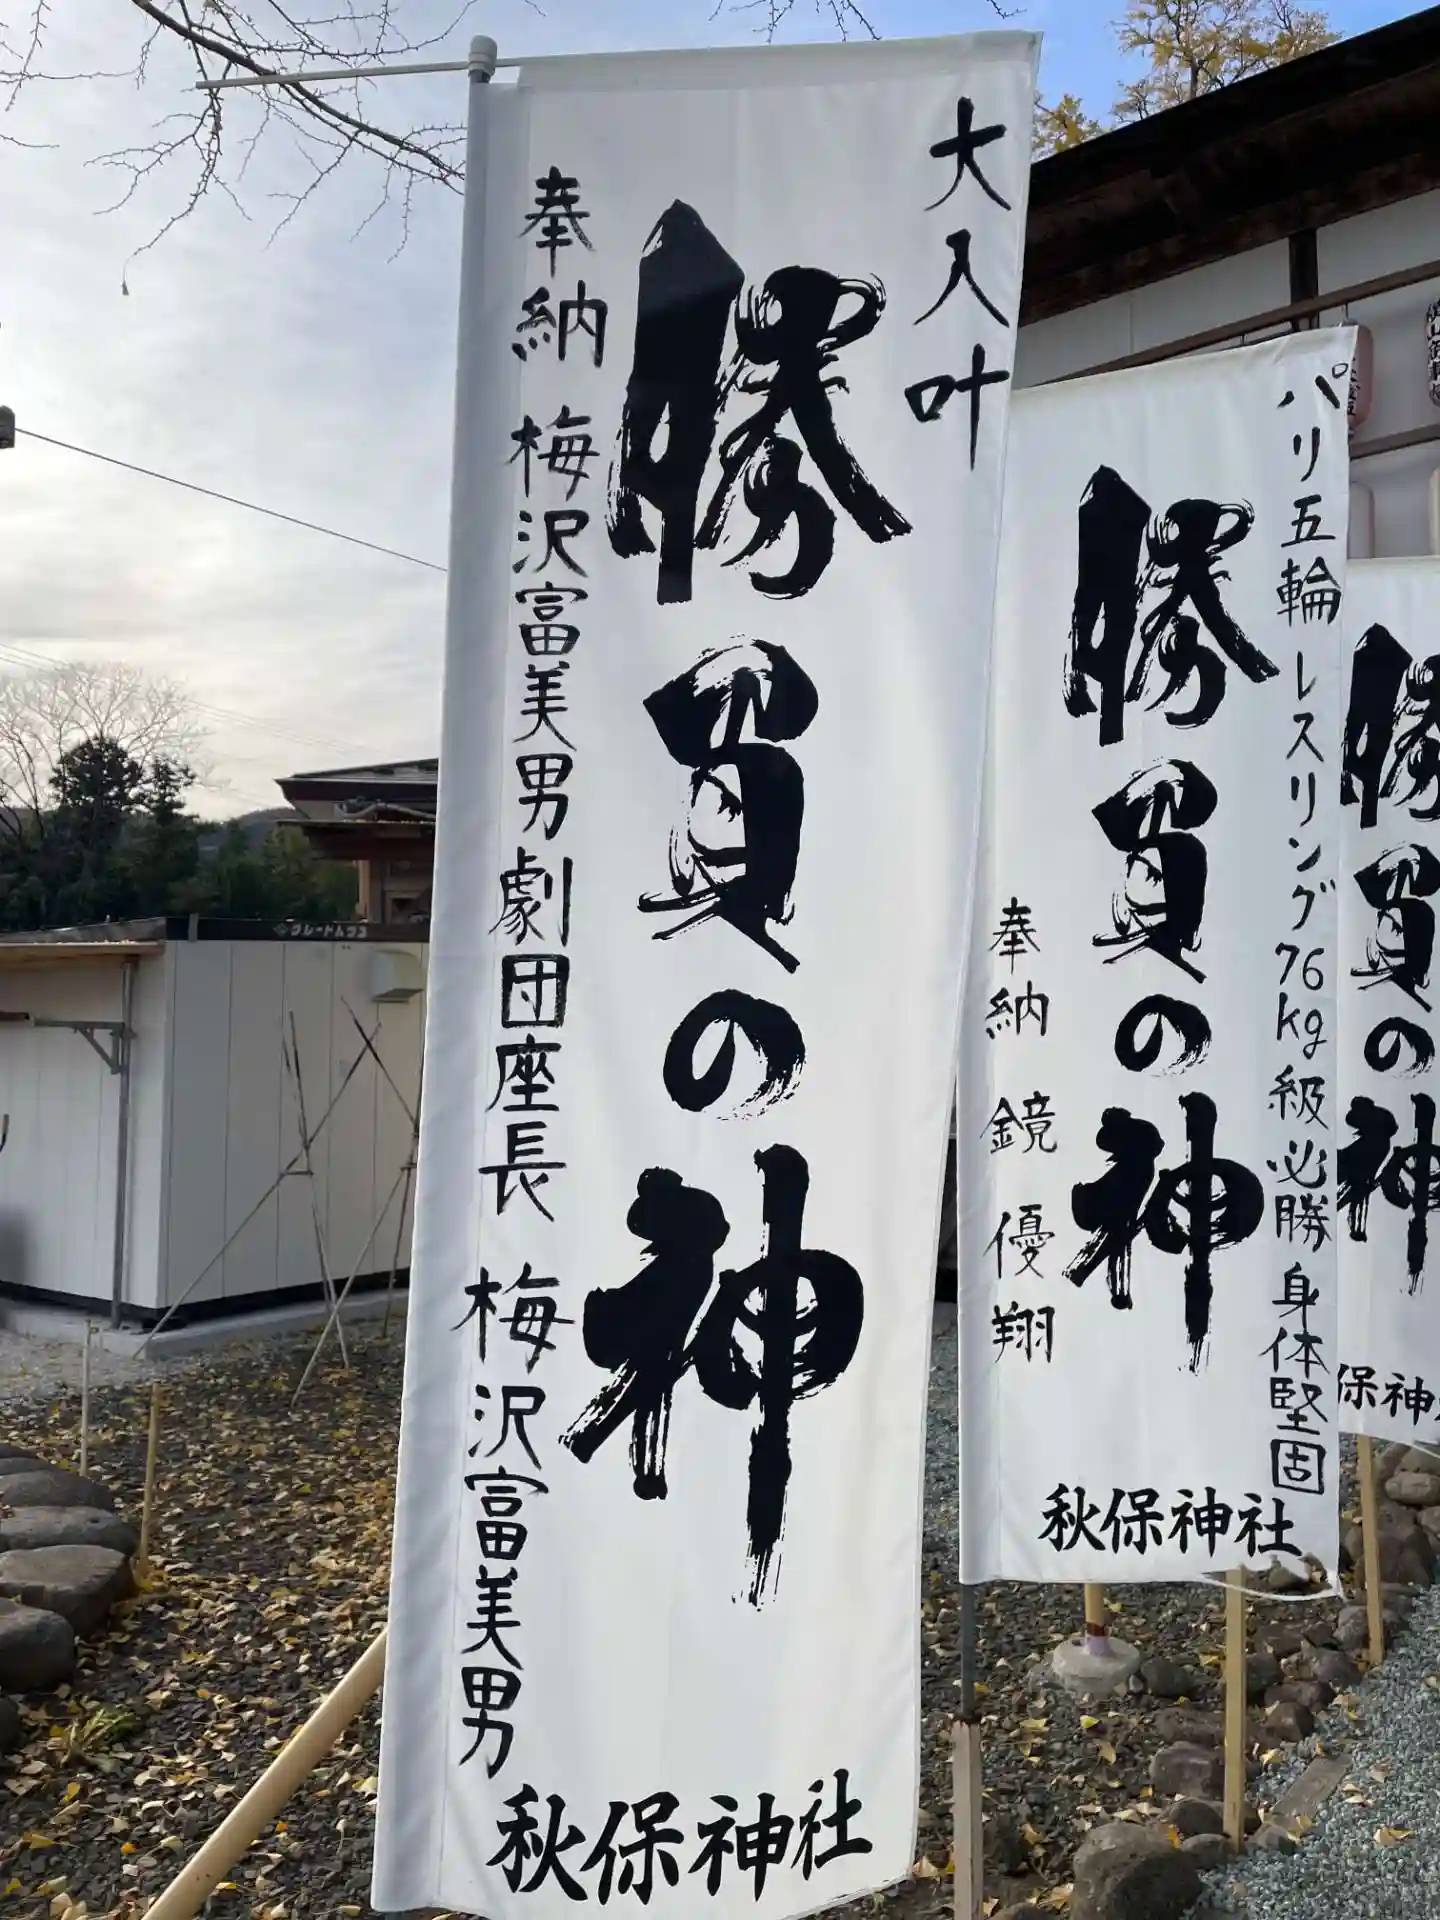 大入叶
勝負の神
奉納 梅沢富美男劇団座長 梅沢富美男
秋保神社
パリ五輪 レスリング76kg級必勝 身体堅固
勝負の神
奉納 鏡 優翔
秋保神社
勝負の神
保神